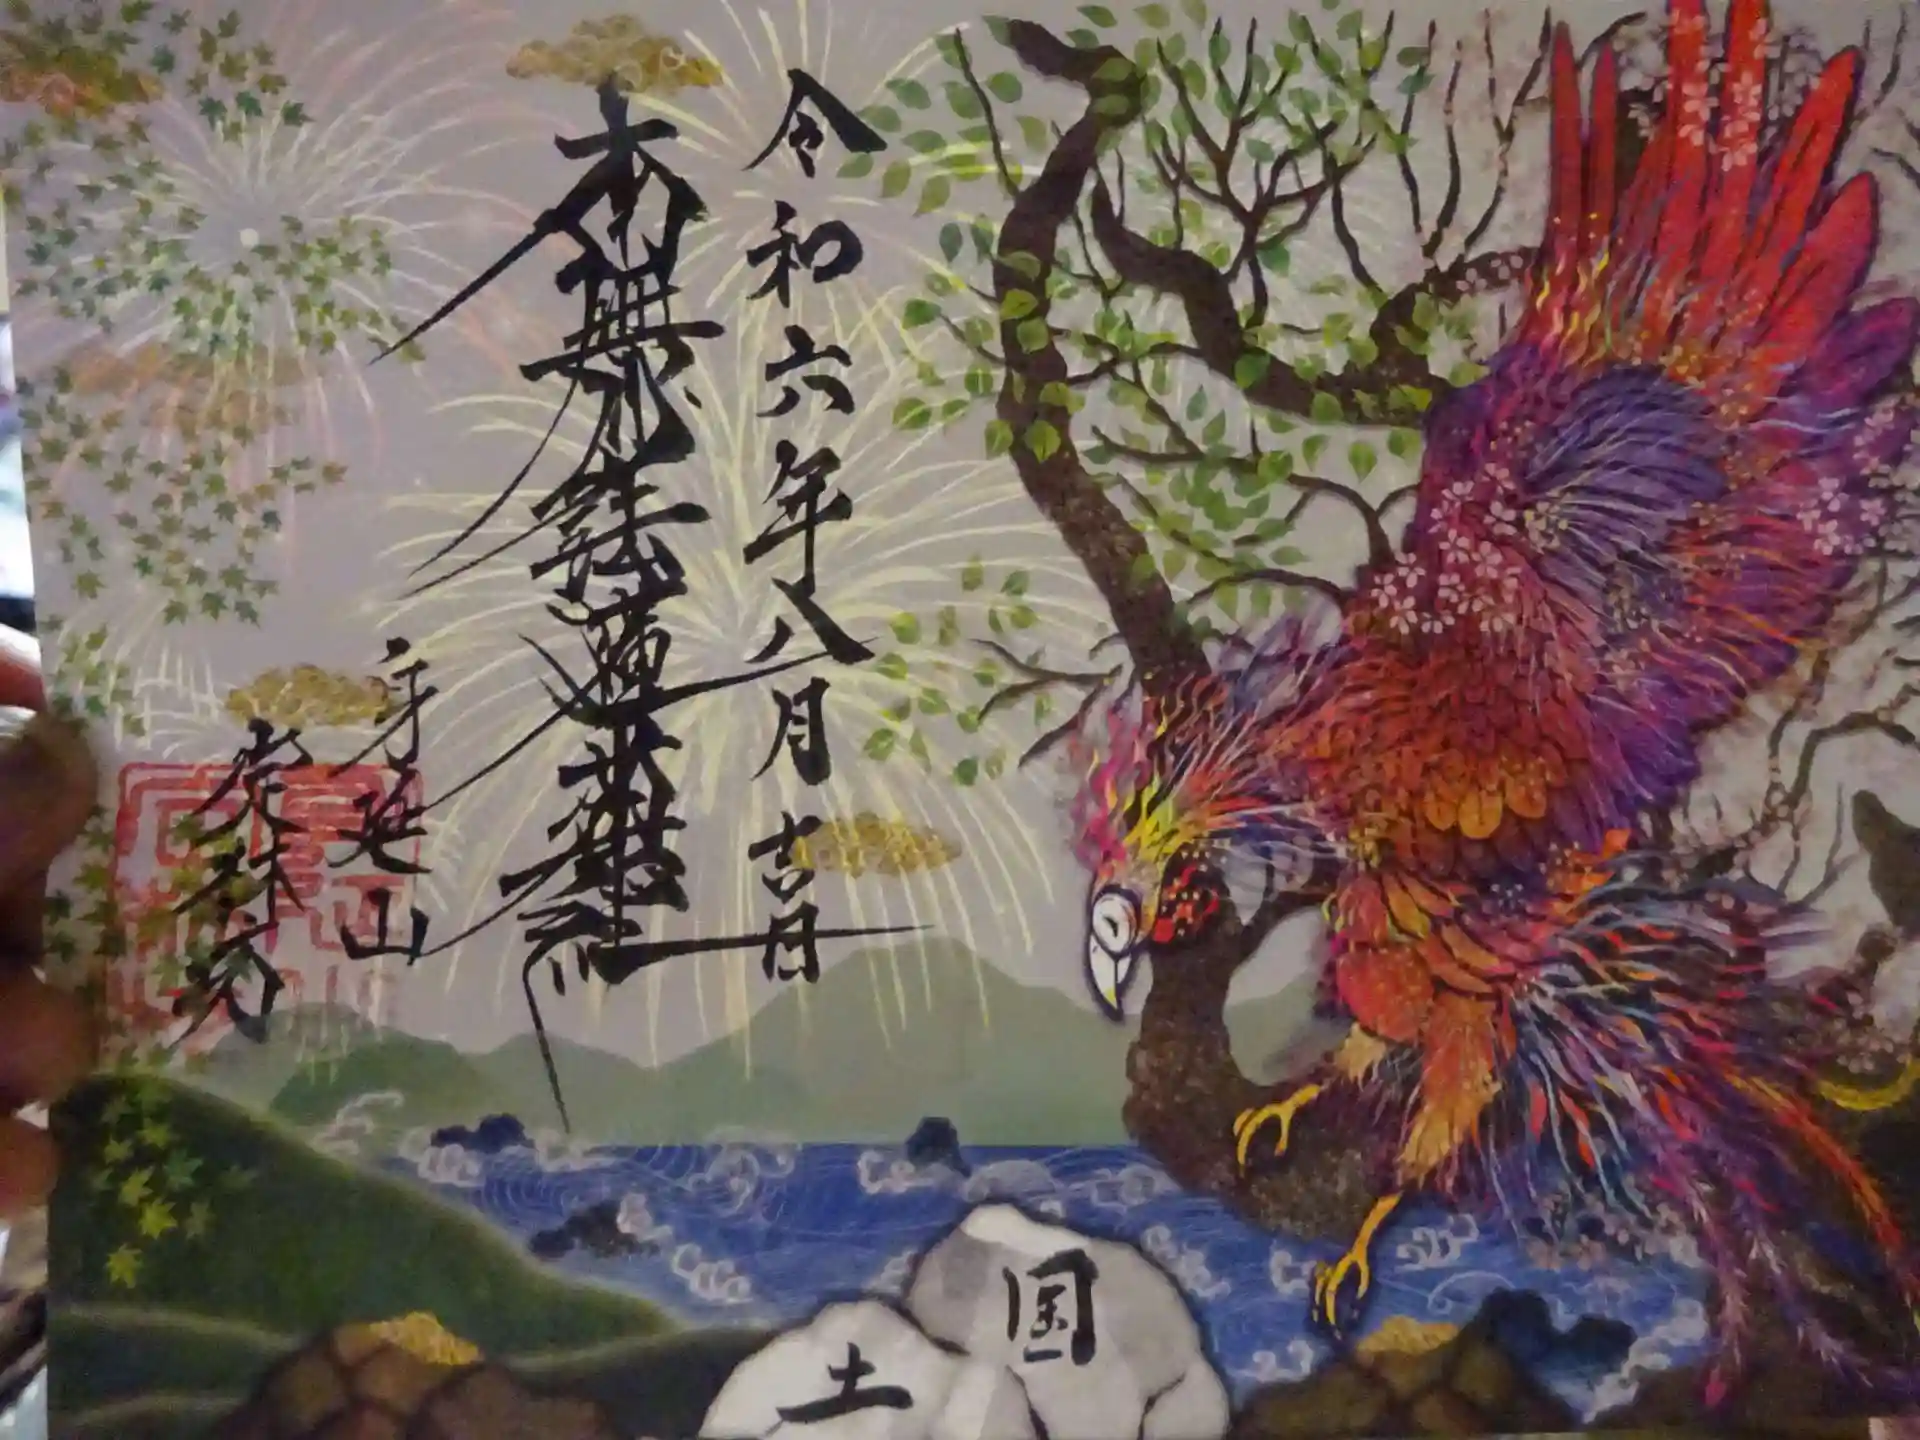 令和六年八月吉日
南無妙法蓮華経
身延山
国土